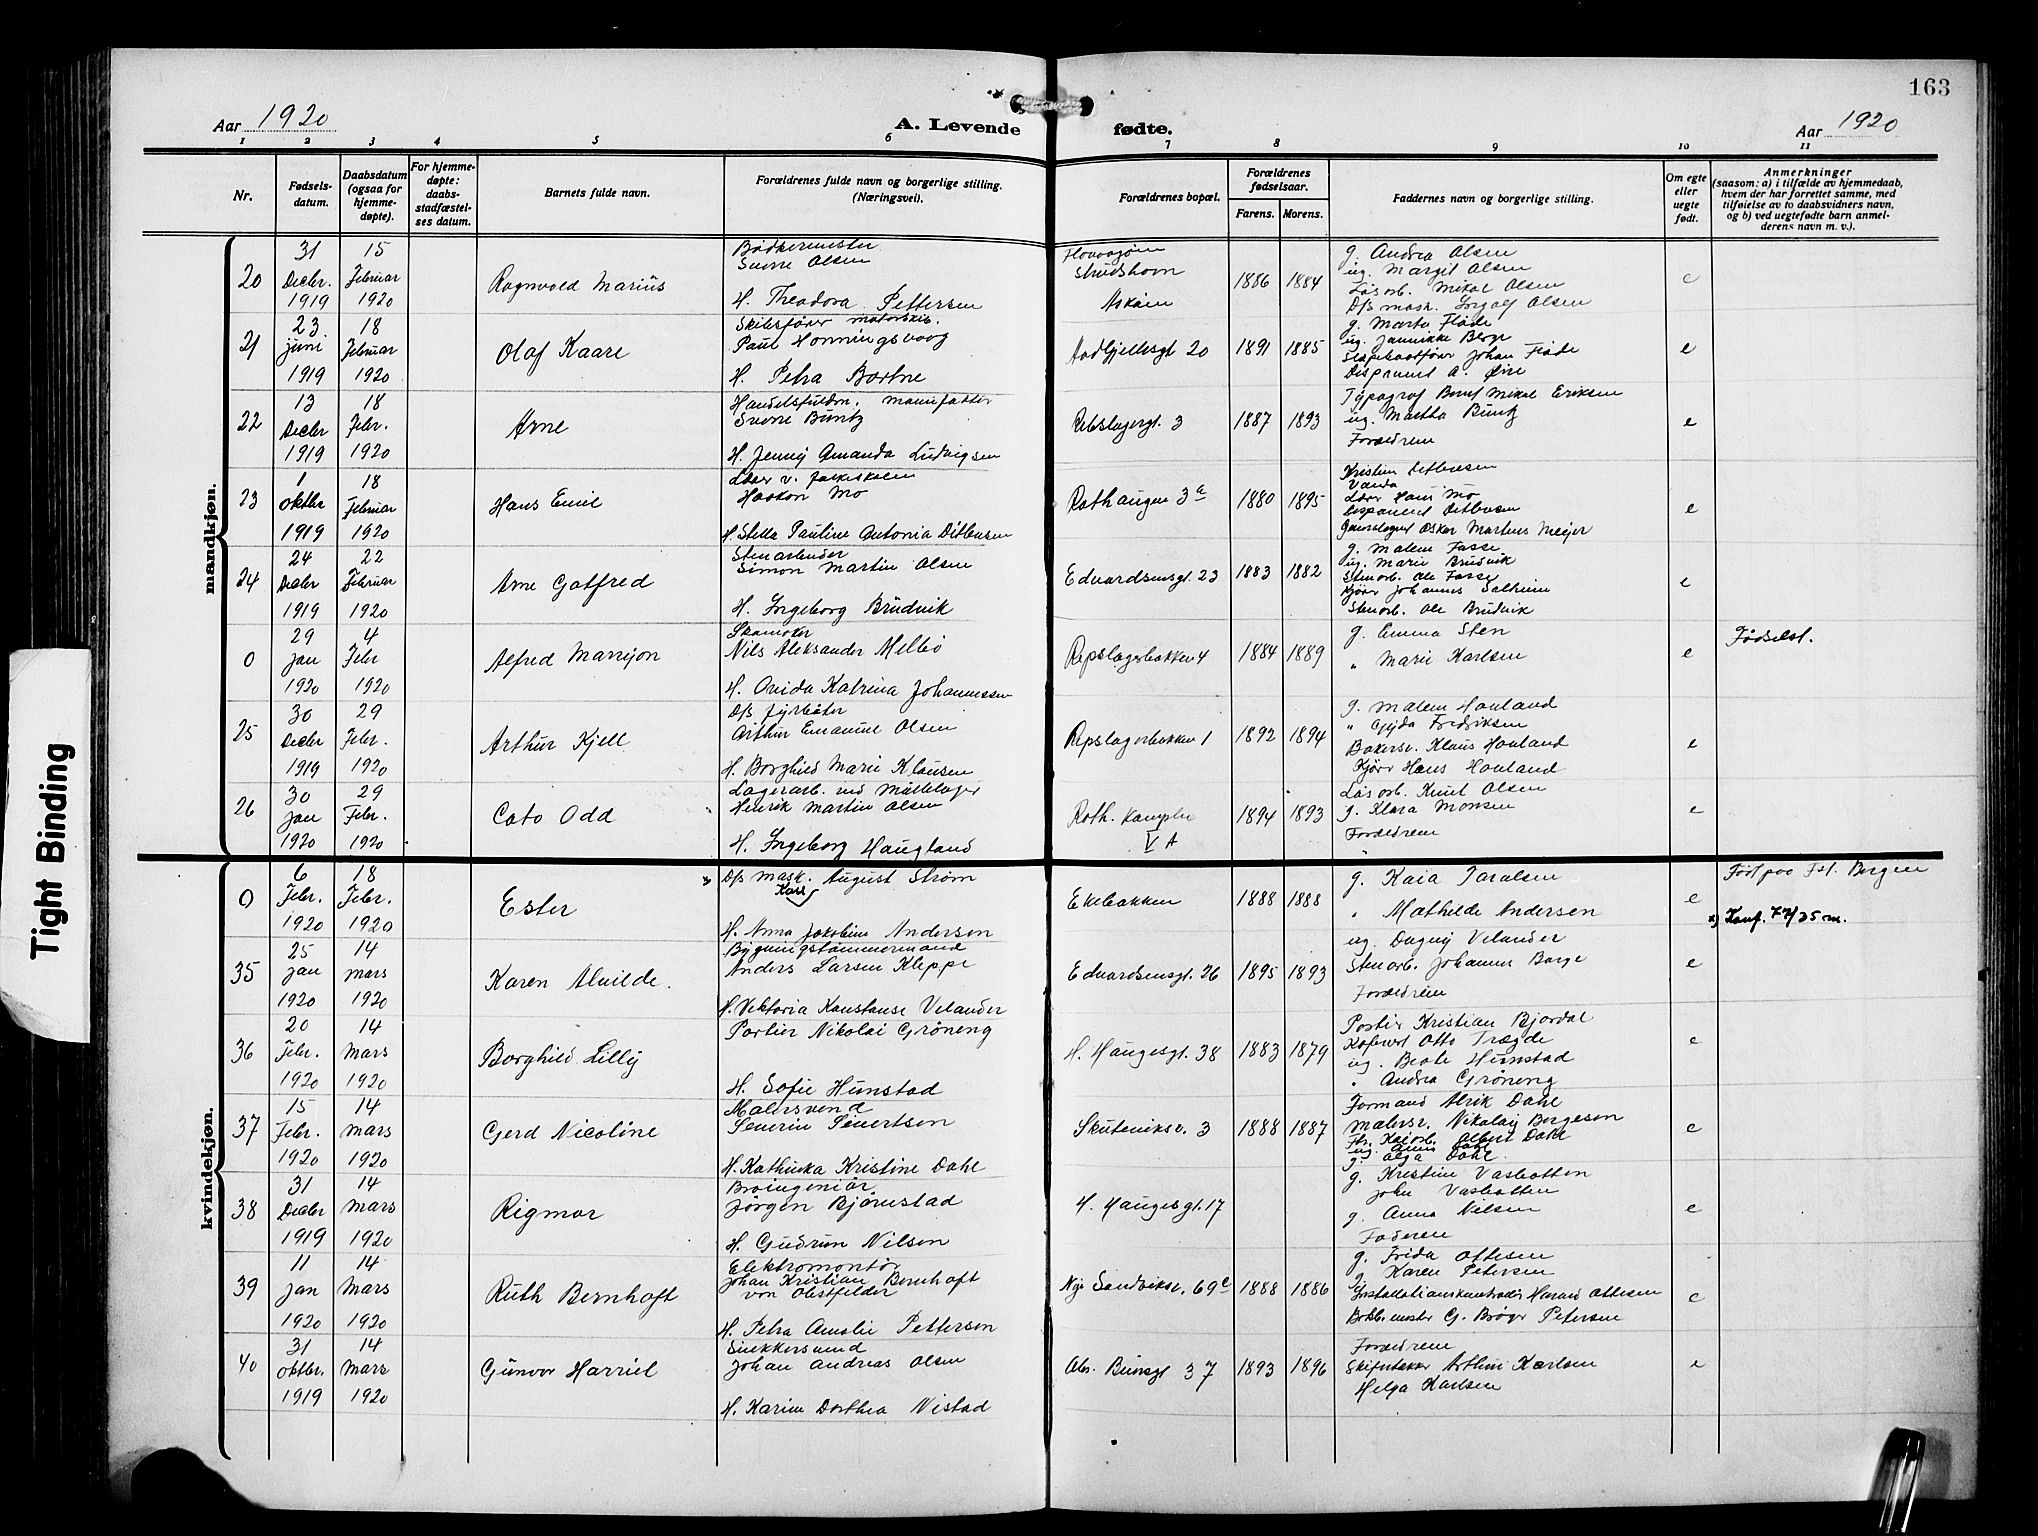 163
Aar 1920
A. Levende fødte.
Aar 1920
1 2 3 4 5 6 7 8 9 10 11
Nr.
Fødsels-datum.
Daabsdatum (ogsaa for hjemme-døpte).
For hjemme-døpte: daabs-stadfæstel-ses datum.
Barnets fulde navn.
Forældrenes fulde navn og borgerlige stilling. (Næringsvei).
Forældrenes bopæl.
Forældrenes fødselsaar.
Farens. Morens.
Faddernes navn og borgerlige stilling.
Om egte eller uegte født.
Anmerkninger
(saasom: a) i tilfælde av hjemmedaab,
hvem der har forrettet samme, med
tilføielse av to daabsvidners navn,
og b) ved uegtefødte barn anmel-
derens navn m. v.).
mandkjøn.
20
31 Decbr. 1919
15 Februar 1920
Ragnvald Marius
Bødkermester
Sverre Olsen
H. Theodora Pettersen
Strudshavn
Askøen
1886 1884
g. Andrea Olsen
ug. Margit Olsen
Løsarb. Mikal Olsen
D/s mask. Ingolf Olsen
e
21
23 juni 1919
18 Februar 1920
Olaf Kaare
Skibsfører motorskib.
Paul Honningsvaag
H. Petra Bortne
Aadgjellsgt 20
1891 1885
g. Marta Fløde
ug. Jannikke Berge
Slæpebaatfører Johan Fløde
Disponent A. Øire
e
22
13 Decbr 1919
18 Febr. 1920
Arne
Handelsfuldm. manufaktur
Sverre Buntz
H. Jenny Amanda Ludvigsen
Rebslagergt. 3
1887 1893
Typograf Bernt Mikal Eriksen
ug. Martha Buntz
Forældrene
e
23
1 Oktbr 1919
18 Februar 1920
Hans Emil
Lærer v. folkeskolen
Haakon Mo
H. Stella Pauline Antonia Ditlevsen
Rothaugen 3a
1880 1895
Kristine Ditlevsen
Vanda
Lærer Hans Mo
Disponent Ditlevsen
Oskar Martens Meyer
e
24
24 Decbr 1919
22 Februar 1920
Arne Gotfred
Stenarbeider
Simon Martin Olsen
H. Ingeborg Brudvik
Edvardsensgt. 23
1883 1882
g. Malene Fosse
ug. Marie Brudvik
Stenarb. Ole Fosse
Kjører Johannes Solheim
Stenarb. Ole Brudvik
e
0
29 Jan 1920
4 Febr 1920
Alfred Marrijon
Skomaker
Nils Aleksander Melbø
H. Ovida Katrina Johannessen
Repslagerbakken 4
1884 1889
g. Emma Sten
" Marie Karlsen
e
Fødselst.
25
30 Decbr 1919
29 Febr. 1920
Arthur Kjell
D/s fyrbøter
Arthur Emanuel Olsen
H. Borghild Marie Klausen
Repslagerbakken 1
1892 1894
g. Malene Houland
" Gyda Fredriksen
Bakersv. Klaus Houland
Kjører Hans Houland
e
26
30 Jan 1920
29 Febr. 1920
Cato Odd
Lagerarb. ved Møllelager
Henrik Martin Olsen
H. Ingeborg Haugland
Roth. Kompleks
V A
1894 1893
Løsarb. Knut Olsen
g. Klara Monsen
Forældrene
e
kvindekjøn.
0
6 Febr. 1920
18 Febr. 1920
Ester
D/s mask. Karl August Strøm
H. Anna Jakobine Andersen
Ekebakken
1888 1888
g. Kaia Paralsen
" Mathilde Andersen
e
Født paa Fst. Bergen
x) Konf. 77/35 m.
35
25 Jan 1920
14 mars 1920
Karen Alvilde.
Bygningstømmermand
Anders Larsen Kleppe
H. Vektoria Konstanse Velander
Edvardsensgt. 26
1895 1893
ug. Dagny Velander
Stenarb. Johannes Borge
Forældrene
e
36
20 Febr. 1920
14 Mars 1920
Borghild Lilly
Portier Nikolai Grøneng
H. Sofie Hunstad
H. Haugesgt. 38
1883 1879
Portier Kristian Bjordal
Kafevert Otto Trægde
ug. Beate Hunstad
" Andrea Grøneng
e
37
15 Febr. 1920
14 Mars 1920
Gerd Nicoline
Malersvend
Severin Sivertsen
H. Kathinka Kristine Dahl
Skuteviksv. 3
1888 1887
Formand Alrik Dahl
Malersv. Nikolay Borgesen
Fhv. Kaiarb. Albert Dahl
ug. Anna Dahl
g. Olga Dahl.
e
38
31 Decbr 1919
14 Mars 1920
Rigmor
Broingeniør
Jørgen Bjørnstad
H. Gudrun Nilsen
H. Haugesgt. 17
g. Kristine Vasbotten
John Vasbotten
g. Anna Nilsen
Faderen
e
39
11 Jan 1920
14 Mars 1920
Ruth Bernhoft
Elektromontør
Johan Kristian Bernhoft
von Obstfelder
H. Petra Amalie Pettersen
Nye Sandviksv. 69c
1888 1886
g. Frida Ottesen
g. Karen Petersen
Installationskontrolør Harald Ottesen
Bokb.mester G. Brøgr Petersen
Forældrene
e
40
31 Oktbr. 1919
14 Mars 1920
Gunvor Harriet
Snekkersvend
Johan Andreas Olsen
H. Karine Dorthea Nistad
Abs. Beiersgt 37
1893 1896
Skifertækker Arthur Karlsen
Helga Karlsen
e
Tight Binding